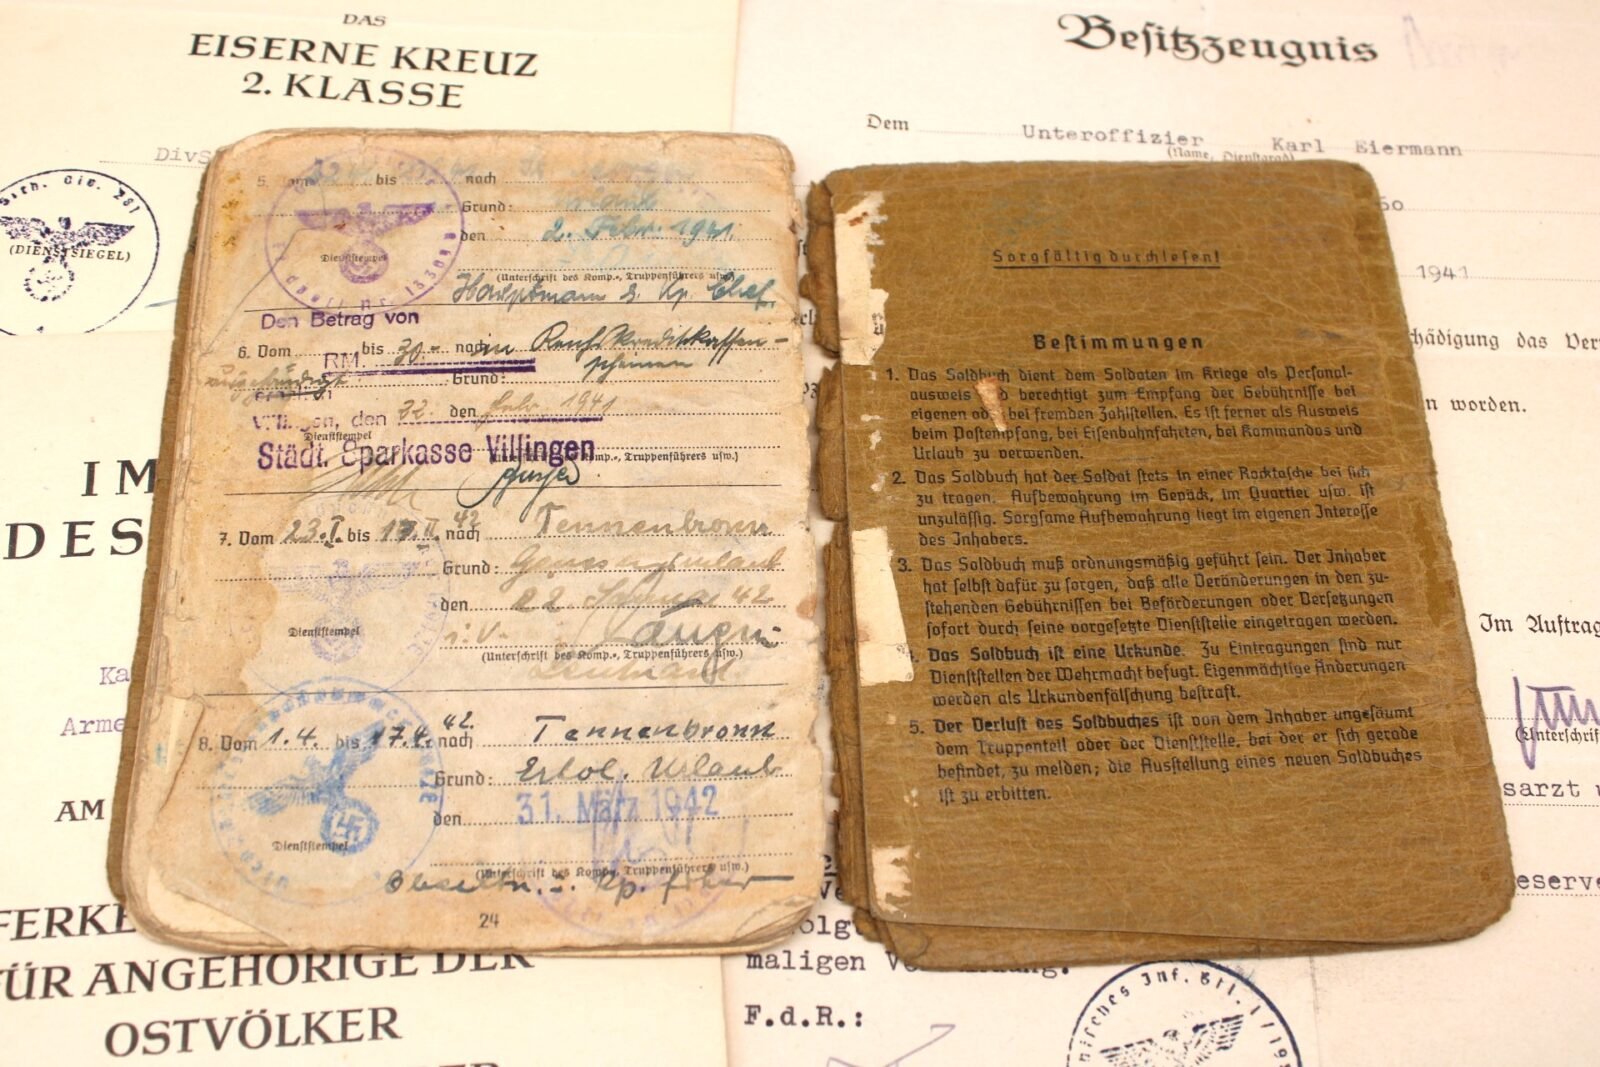 DAS
EISERNE KREUZ
2. KLASSE
DivS
(DIENSTSIEGEL)
IM
DES
Ka
Arme
AM
FERKE
FÜR ANGEHÖRIGE DER
OSTVÖLKER
5. Vom bis nach
Grund:
Urlaub
den 2. Febr. 1941.
Dienststempel
(Unterschrift des Komp.-, Truppenführers usw.)
Hauptmann u. Kp. Chef.
Den Betrag von
6. Vom bis nach
RM. 30.- in Reichskreditkassen-
scheinen
ausgehändigt
Grund:
Villingen, den 22. den Febr. 1941
Dienststempel
Städt. Sparkasse Villingen
(Unterschrift des Komp.-, Truppenführers usw.)
7. Vom 23.I. bis 17.II. 42 nach Tennenbronn
Grund: Genesungsurlaub
den 22. Januar 42
i.V.
Dienststempel
(Unterschrift des Komp.-, Truppenführers usw.)
Leutnant
8. Vom 1.4. bis 17.4. 42. nach Tennenbronn
Grund: Erhol. Urlaub
den 31. März 1942
Dienststempel
(Unterschrift des Komp.-, Truppenführers usw.)
Oberltn. u. Kp. Führer
24
Besitzzeugnis
Dem Unteroffizier Karl Eiermann
(Name, Dienstgrad)
1941
Sorgfältig durchlesen!
Bestimmungen
1. Das Soldbuch dient dem Soldaten im Kriege als Personal-
ausweis und berechtigt zum Empfang der Gebührnisse bei
eigenen oder bei fremden Zahlstellen. Es ist ferner als Ausweis
beim Postempfang, bei Eisenbahnfahrten, bei Kommandos und
Urlaub zu verwenden.
2. Das Soldbuch hat der Soldat stets in einer Rocktasche bei sich
zu tragen. Aufbewahrung im Gepäck, im Quartier usw. ist
unzulässig. Sorgsame Aufbewahrung liegt im eigenen Interesse
des Inhabers.
3. Das Soldbuch muß ordnungsmäßig geführt sein. Der Inhaber
hat selbst dafür zu sorgen, daß alle Veränderungen in den zu-
stehenden Gebührnissen bei Beförderungen oder Versetzungen
sofort durch seine vorgesetzte Dienststelle eingetragen werden.
4. Das Soldbuch ist eine Urkunde. Zu Eintragungen sind nur
Dienststellen der Wehrmacht befugt. Eigenmächtige Änderungen
werden als Urkundenfälschung bestraft.
5. Der Verlust des Soldbuches ist von dem Inhaber ungesäumt
dem Truppenteil oder der Dienststelle, bei der er sich gerade
befindet, zu melden; die Ausstellung eines neuen Soldbuches
ist zu erbitten.
chädigung das Ver
n worden.
Im Auftrag
(Unterschrif
sarzt u
eserve
olgt
maligen
F.d.R.: